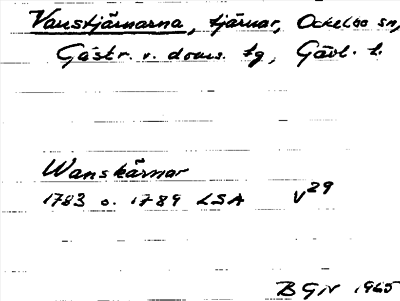 Vanstjärnarna, tjärnar, Ockelbo sn,
Gästr. v. doms. tg, Gävl. l.
Wanskärnar
1783 o. 1789 LSA V29
B GN 1965